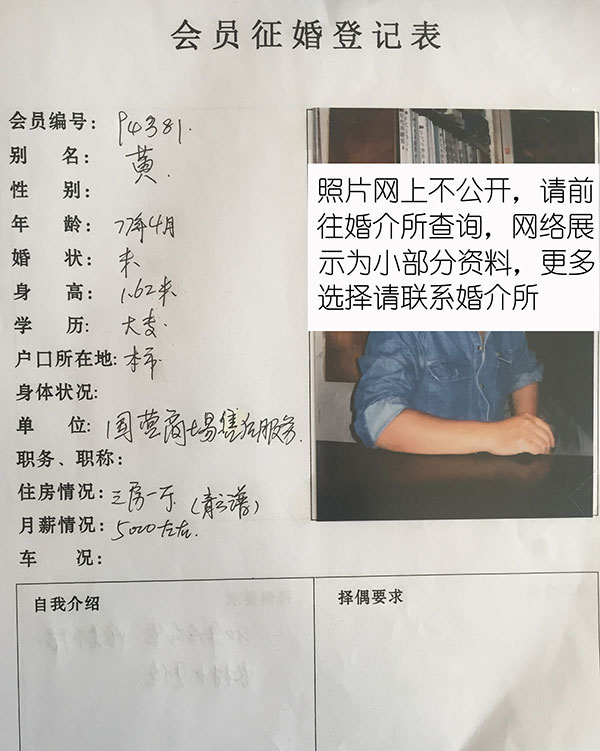 会员征婚登记表
会员编号: 94381.
别 名: 黄.
性 别:
年 龄: 77年4月
婚 状: 未.
身 高: 1.62米.
学 历: 大专.
户口所在地: 本市.
身体状况:
单 位: 国营商场售后服务.
职务、职称:
住房情况: 三房一厅 (青云谱)
月薪情况: 5000左右.
车 况:
自我介绍
择偶要求
照片网上不公开，请前
往婚介所查询，网络展
示为小部分资料，更多
选择请联系婚介所